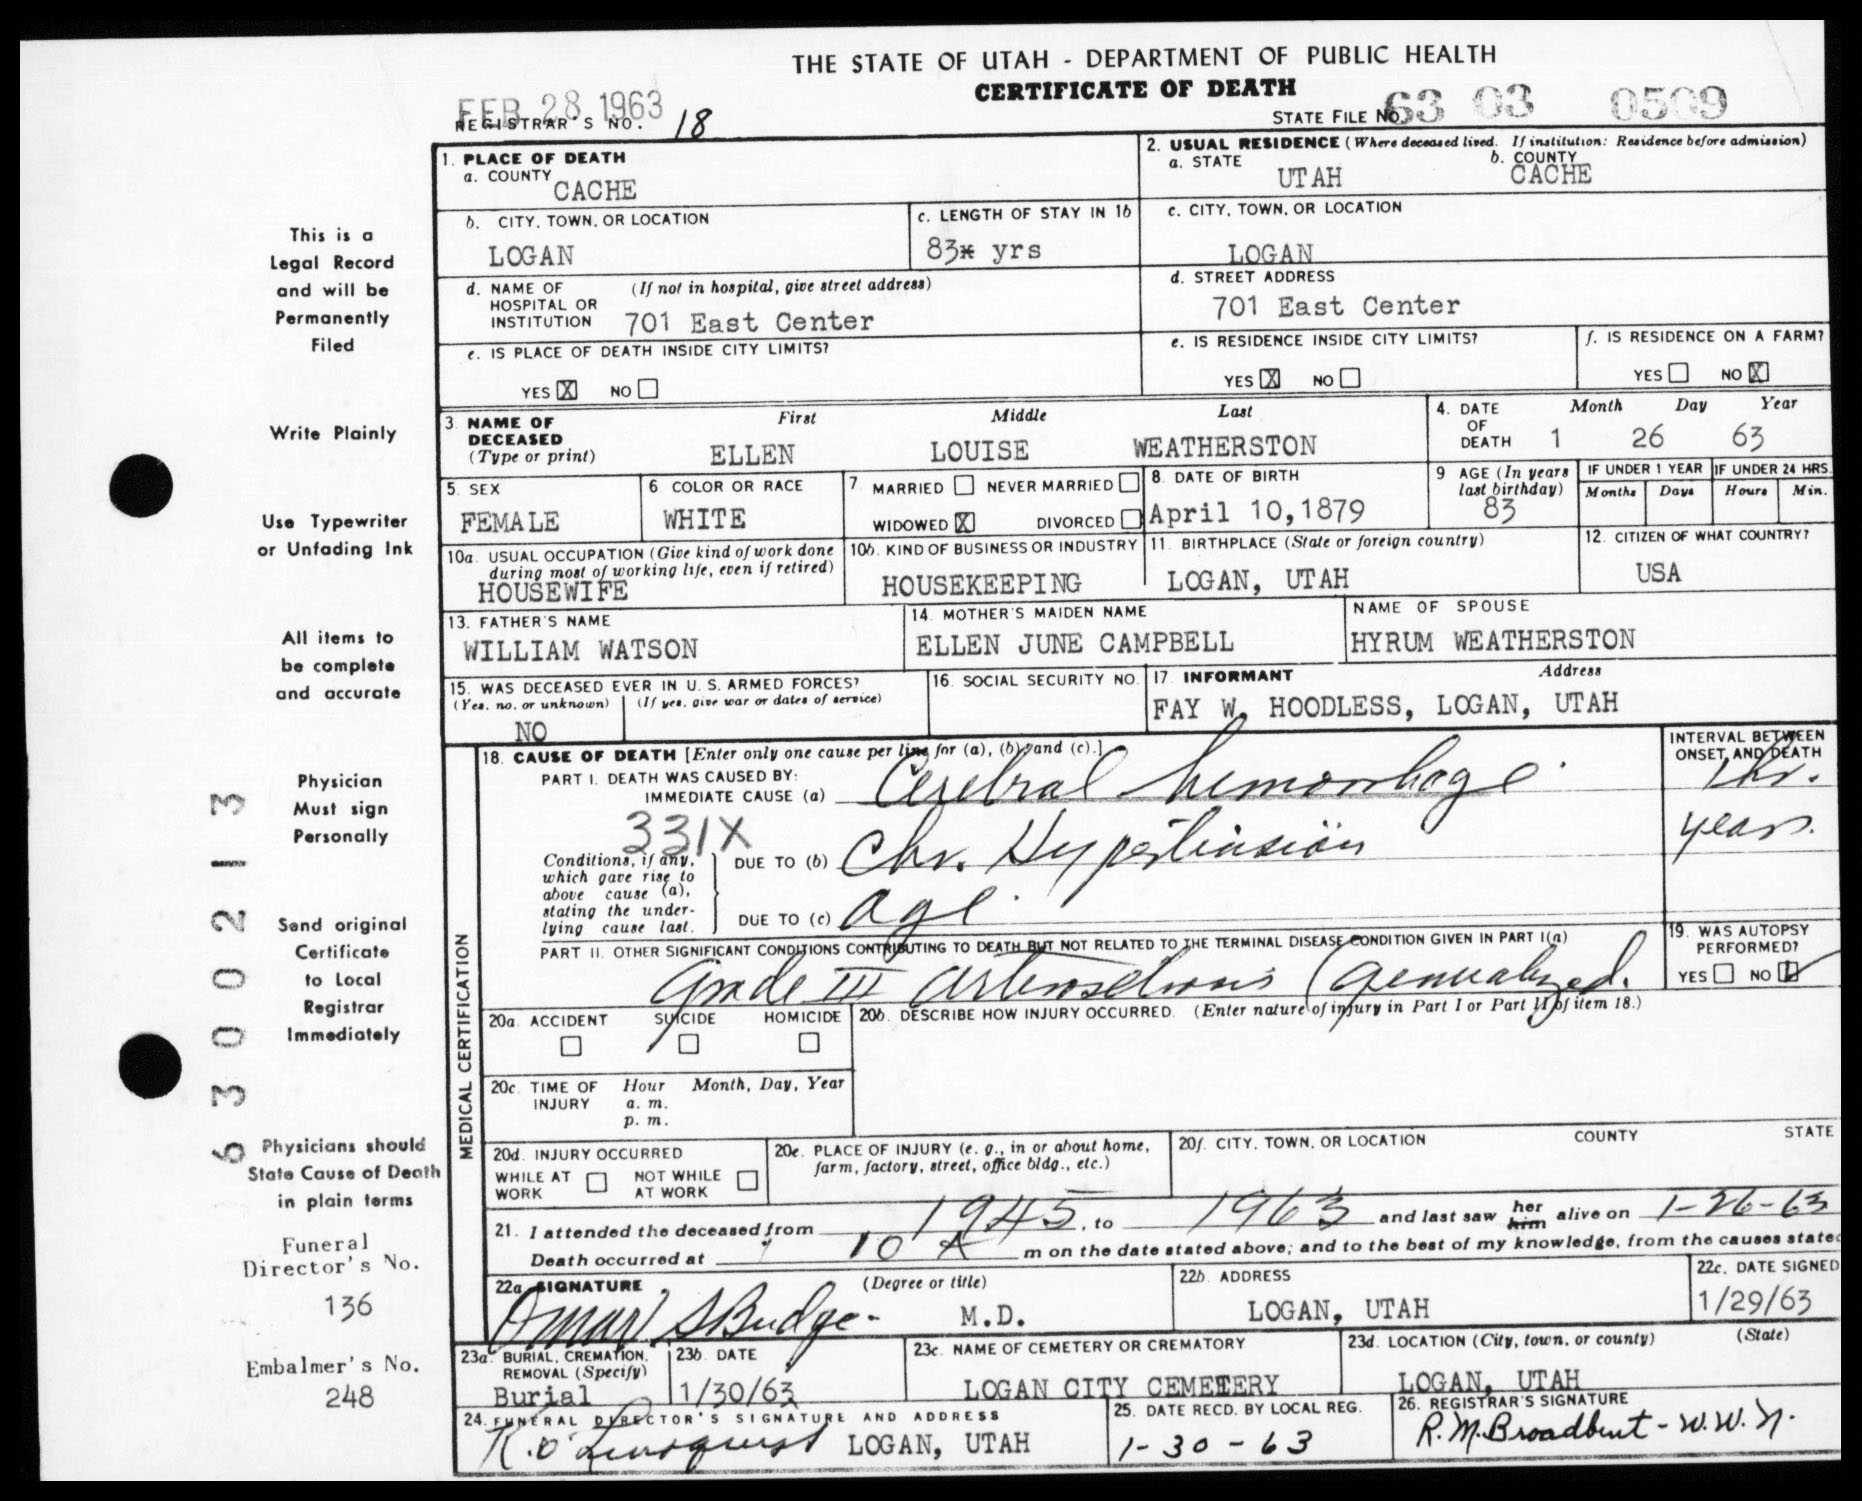 THE STATE OF UTAH - DEPARTMENT OF PUBLIC HEALTH
CERTIFICATE OF DEATH
FEB 28 1963
REGISTRAR'S NO. 18
STATE FILE NO. 63 03 0509
1. PLACE OF DEATH
a. COUNTY
CACHE
2. USUAL RESIDENCE (Where deceased lived. If institution: Residence before admission)
a. STATE
UTAH
b. COUNTY
CACHE
b. CITY, TOWN, OR LOCATION
LOGAN
c. LENGTH OF STAY IN 1b
83* yrs
c. CITY, TOWN, OR LOCATION
LOGAN
d. NAME OF (If not in hospital, give street address)
HOSPITAL OR
INSTITUTION 701 East Center
d. STREET ADDRESS
701 East Center
e. IS PLACE OF DEATH INSIDE CITY LIMITS?
YES X NO
e. IS RESIDENCE INSIDE CITY LIMITS?
YES X NO
f. IS RESIDENCE ON A FARM?
YES NO X
3. NAME OF DECEASED (Type or print)
First Middle Last
ELLEN LOUISE WEATHERSTON
4. DATE OF DEATH
Month Day Year
1 26 63
5. SEX
FEMALE
6. COLOR OR RACE
WHITE
7. MARRIED NEVER MARRIED
WIDOWED X DIVORCED
8. DATE OF BIRTH
April 10,1879
9 AGE (In years last birthday)
83
IF UNDER 1 YEAR
Months Days
IF UNDER 24 HRS.
Hours Min.
10a. USUAL OCCUPATION (Give kind of work done
during most of working life, even if retired)
HOUSEWIFE
10b. KIND OF BUSINESS OR INDUSTRY
HOUSEKEEPING
11. BIRTHPLACE (State or foreign country)
LOGAN, UTAH
12. CITIZEN OF WHAT COUNTRY?
USA
13. FATHER'S NAME
WILLIAM WATSON
14. MOTHER'S MAIDEN NAME
ELLEN JUNE CAMPBELL
NAME OF SPOUSE
HYRUM WEATHERSTON
15. WAS DECEASED EVER IN U. S. ARMED FORCES?
(Yes, no, or unknown) (If yes, give war or dates of service)
NO
16. SOCIAL SECURITY NO.
17. INFORMANT Address
FAY W. HOODLESS, LOGAN, UTAH
MEDICAL CERTIFICATION
18. CAUSE OF DEATH [Enter only one cause per line for (a), (b), and (c).]
PART I. DEATH WAS CAUSED BY:
IMMEDIATE CAUSE (a) Cerebral hemorrhage.
INTERVAL BETWEEN
ONSET AND DEATH
1 hr.
331X
Conditions, if any,
which gave rise to
above cause (a),
stating the under-
lying cause last.
DUE TO (b) Chr. Hypertension
years.
DUE TO (c) age.
PART II. OTHER SIGNIFICANT CONDITIONS CONTRIBUTING TO DEATH BUT NOT RELATED TO THE TERMINAL DISEASE CONDITION GIVEN IN PART I(a)
Grade III Arteriosclerosis (generalized.
19. WAS AUTOPSY
PERFORMED?
YES NO
20a. ACCIDENT SUICIDE HOMICIDE
20b. DESCRIBE HOW INJURY OCCURRED. (Enter nature of injury in Part I or Part II of item 18.)
20c. TIME OF INJURY
Hour Month, Day, Year
a. m.
p. m.
20d. INJURY OCCURRED
WHILE AT WORK NOT WHILE AT WORK
20e. PLACE OF INJURY (e. g., in or about home,
farm, factory, street, office bldg., etc.)
20f. CITY, TOWN, OR LOCATION COUNTY STATE
21. I attended the deceased from 1945, to 1963 and last saw her him alive on 1-26-63
Death occurred at 10 A m on the date stated above; and to the best of my knowledge, from the causes stated
22a. SIGNATURE (Degree or title)
Omar S Budge - M.D.
22b. ADDRESS
LOGAN, UTAH
22c. DATE SIGNED
1/29/63
23a. BURIAL, CREMATION,
REMOVAL (Specify)
Burial
23b. DATE
1/30/63
23c. NAME OF CEMETERY OR CREMATORY
LOGAN CITY CEMETERY
23d. LOCATION (City, town, or county) (State)
LOGAN, UTAH
24. FUNERAL DIRECTOR'S SIGNATURE AND ADDRESS
K. O. Lindquist LOGAN, UTAH
25. DATE RECD. BY LOCAL REG.
1-30-63
26. REGISTRAR'S SIGNATURE
R.M. Broadbent - W.W.N.
This is a
Legal Record
and will be
Permanently
Filed
Write Plainly
Use Typewriter
or Unfading Ink
All items to
be complete
and accurate
Physician
Must sign
Personally
Send original
Certificate
to Local
Registrar
Immediately
Physicians should
State Cause of Death
in plain terms
Funeral
Director's No.
136
Embalmer's No.
248
63000213